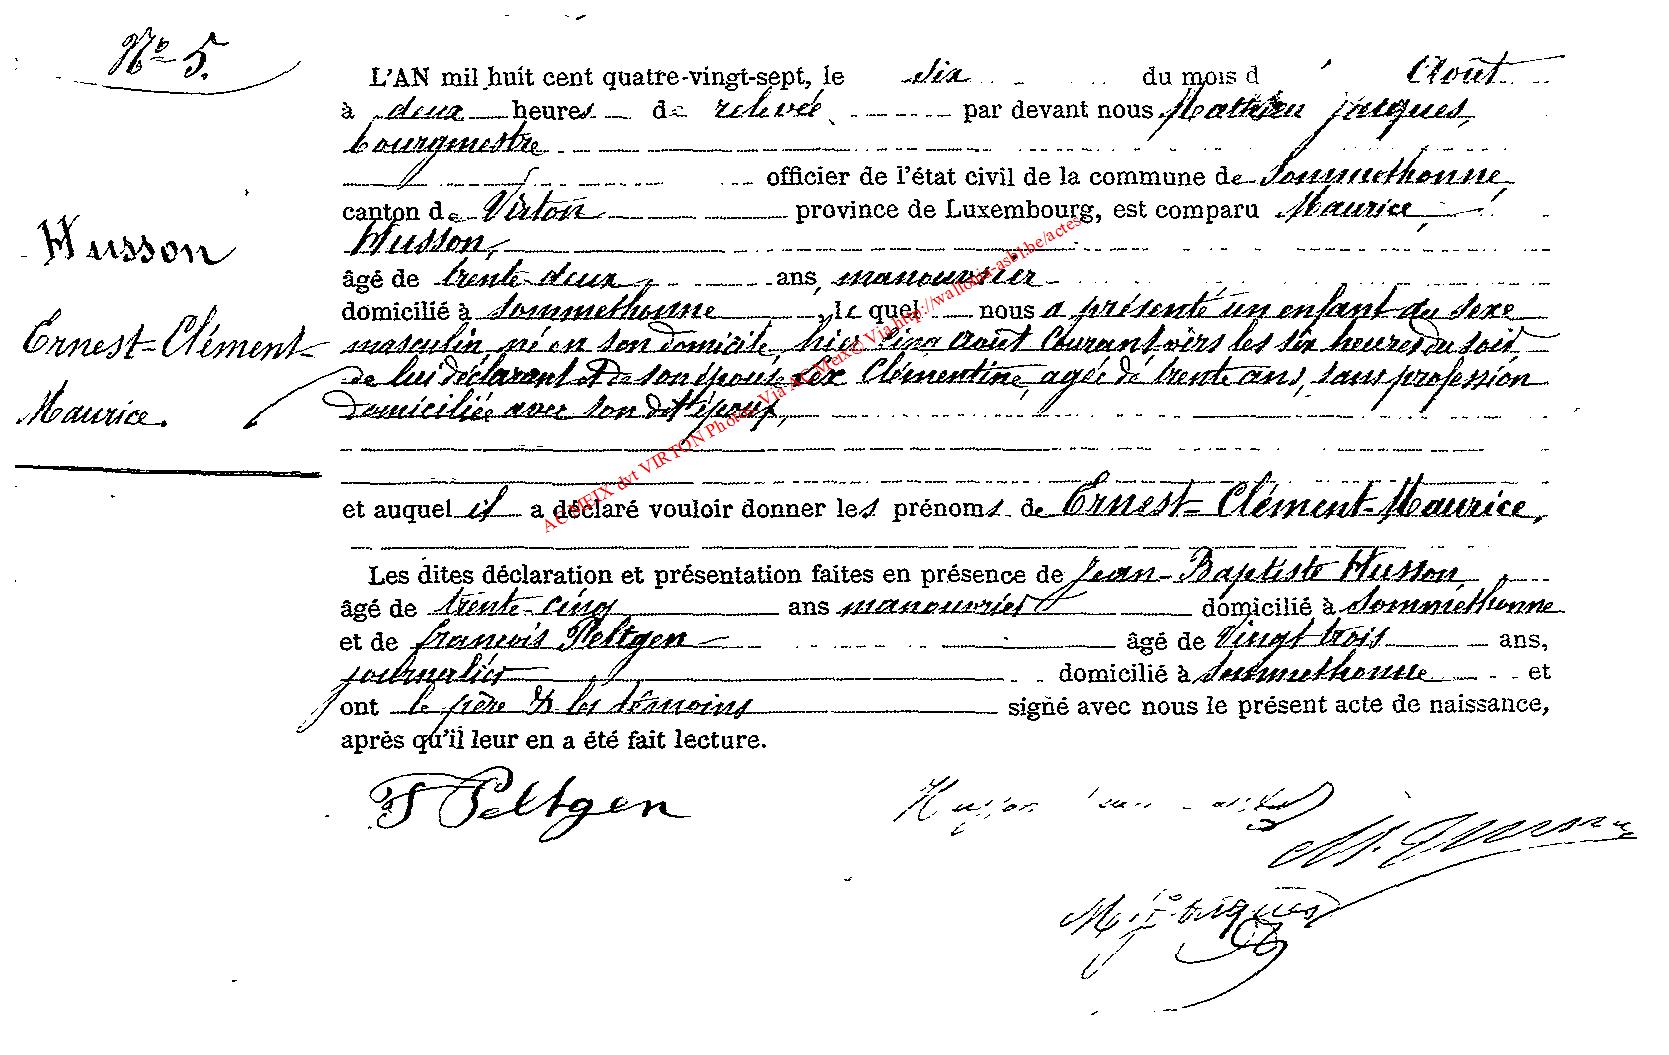 N° 5.
L'AN mil huit cent quatre-vingt-sept, le six du mois d Août
à deux heures de relevée par devant nous Mathieu Jacques,
bourgmestre
officier de l'état civil de la commune de Sommethonne,
canton de Virton province de Luxembourg, est comparu Maurice
Husson,
âgé de trente-deux ans, manouvrier
domicilié à Sommethonne, le quel nous a présenté un enfant du sexe
masculin, né en son domicile, hier cinq Août courant, vers les six heures du soir,
de lui déclarant et de son épouse Clémentine, agée de trente ans, sans profession
domiciliée avec son dit époux,
et auquel il a déclaré vouloir donner les prénoms de Ernest-Clément-Maurice,
Les dites déclaration et présentation faites en présence de Jean-Baptiste Husson,
âgé de trente-cinq ans manouvrier domicilié à Sommethonne
et de françois Peltgen âgé de vingt trois ans,
journalier domicilié à Sommethonne et
ont le père & les témoins signé avec nous le présent acte de naissance,
après qu'il leur en a été fait lecture.
Husson
Ernest-Clément-
Maurice.
F Peltgen
Husson
M. Husson
M Jacques
AC MEIX dvt VIRTON Photos Via AC Meix et Via http://wallonia-asbl.be/actes